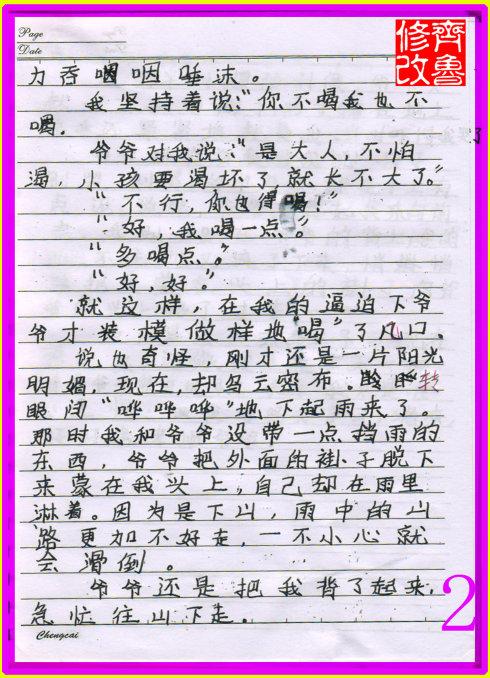 Page
Date
修改
齊魯
力吞咽咽唾沫。
我坚持着说:“你不喝我也不
喝.
爷爷对我说:“是大人,不怕
渴,小孩要渴坏了,就长不大了。”
“不行,你也得喝!”
“好,我喝一点。”
“多喝点。”
“好,好。”
就这样,在我的逼迫下爷
爷才装模做样地“喝”了几口。
说也奇怪,刚才还是一片阳光
明媚,现在,却乌云密布。转
眼间“哗哗哗”地下起雨来了。
那时我和爷爷没带一点挡雨的
东西,爷爷把外面的褂子脱下
来蒙在我头上,自己却在雨里
淋着。因为是下山,雨中的山
路更加不好走,一不小心就
会滑倒。
爷爷还是把我背了起来,
急忙往山下走。
Chengcai
2